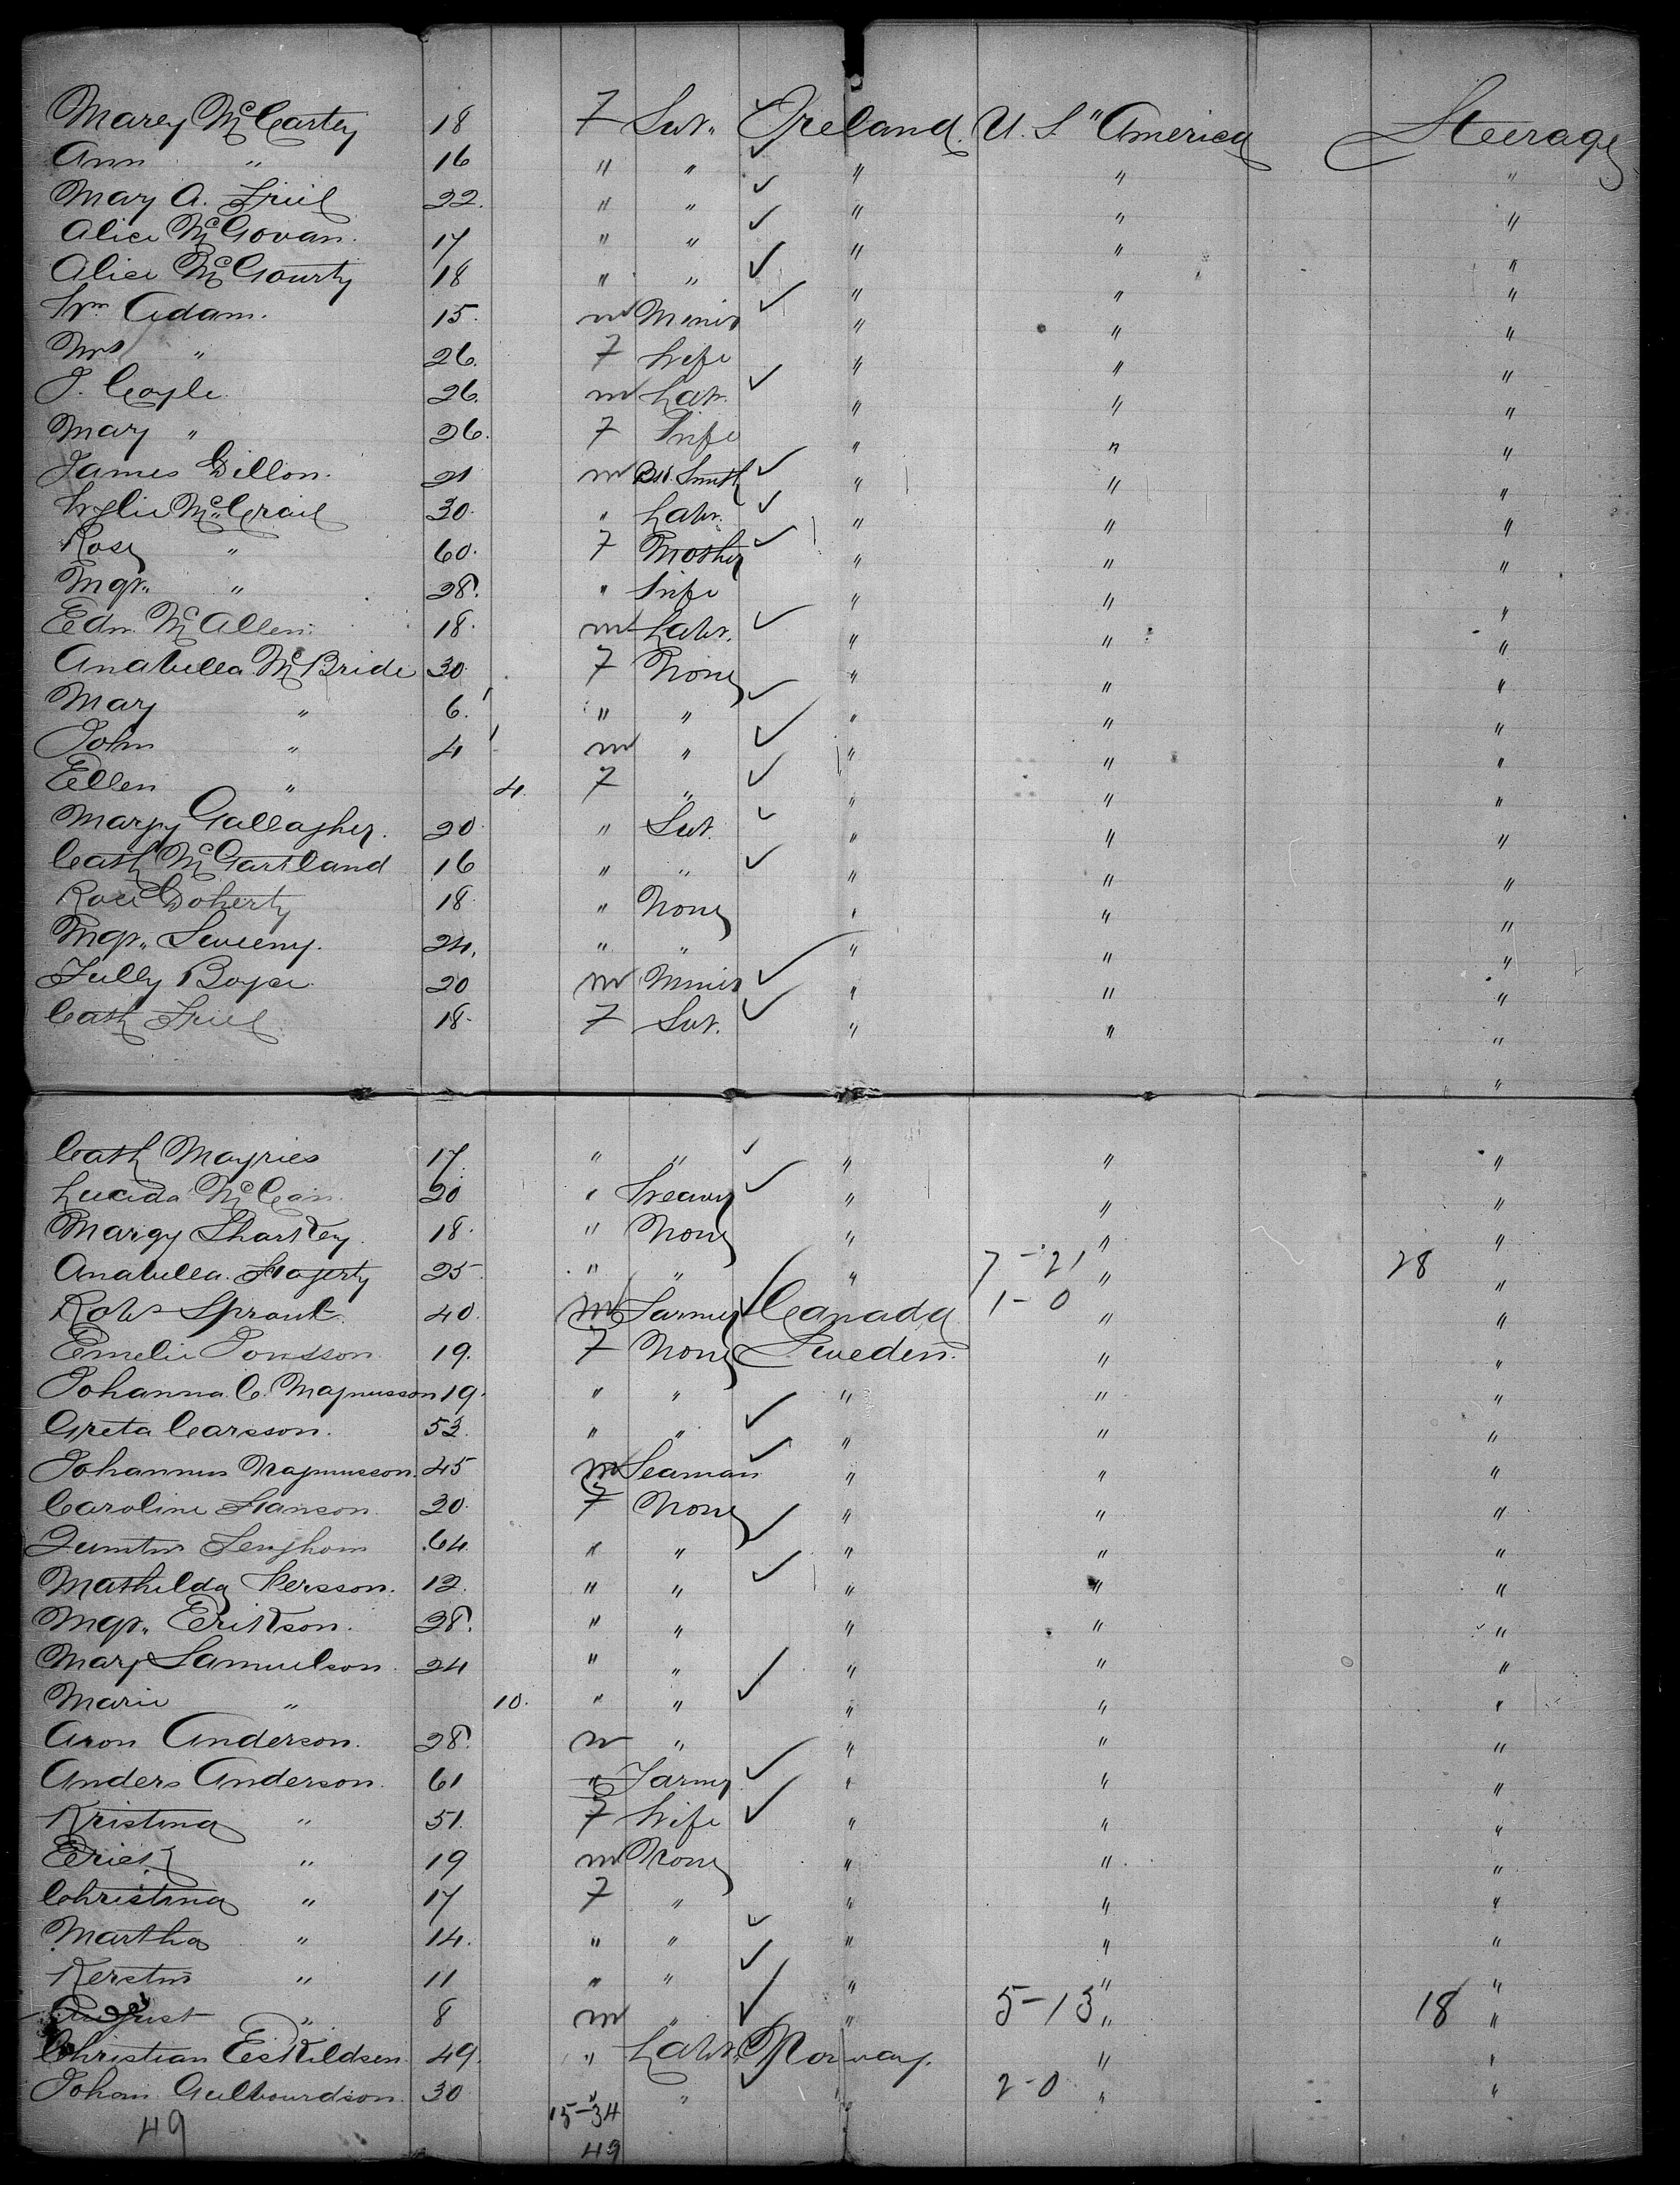 Marey McCartey 18 7 Svt. Ireland. U.S. America Steerage
Ann " 16 " " " " "
Mary A. Friel 22. " " " " "
Alice McGovan. 17 " " " " "
Alice McGourty 18 " " " " "
Wm Adam. 15. m Miner " " "
Mrs " 26. 7 Wife " " "
J. Coyle 26. m Labr. " " "
Mary " 26. 7 Wife " " "
James Dillon. 21 m Bk. Smith " " "
McCrail 30. " Labr. " " "
Rosy " 60. 7 Mother " " "
Mgr. " 28. " Wife " " "
Edn. McAllen. 18. m Labr. " " "
Anabella McBride 30 7 None " " "
Mary " 6. " " " " "
John " 4 m " " " "
Ellen " 4. 7 " " " "
Margy Gallagher. 20 " Svt. " " "
Cath McGartland 16 " " " " "
Rose Doherty 18 " None " " "
Mgr. Sweeny. 24. " " " " "
Boyce 20 m Miner " " "
Cath Friel 18. 7 Svt. " " "
"
Cath Mayries 17. " " " " "
McCain 20 " Weaver " " "
Margy Sharkey. 18. " None " " "
Anabella. Hagerty 25 " " " 7-21 " 28 "
Robt Sproul 40. m Farmer Canada 1-0 " "
Emelie Jonsson 19. 7 None Sweden. " "
Johanna C. Magnusson 19. " " " " "
Greta Carsson. 53. " " " " "
Johannus Magnusson. 45 m Seaman " " "
Caroline Hanson 20. 7 None " " "
64. " " " " "
Mathilda Persson. 12. " " " " "
Mgr. Erikson. 28. " " " " "
Mary Samuelson. 24 " " " " "
Marie " 10. " " " " "
Aron Anderson. 28. m " " " "
Anders Anderson. 61 " Farmer " " "
Kristina " 51. 7 Wife " " "
Erick " 19 m None " " "
Christina " 17 7 " " " "
Martha " 14. " " " " "
Kerstin " 11 " " " " "
August " 8 m " " 5-13 " 18 "
Christian Eskildsen 49. " Labr. Norway. " "
Johan Gulbourdson. 30 " " " 2-0 " "
49 15-34
49